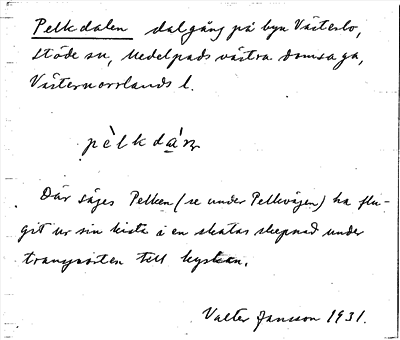 Pelkdalen dalgång på byn Västerlo,
Stöde sn, Medelpads västra domsaga,
Västernorrlands l.
pèlkdáṇ
Där säges Pelken (se under Pelkvägen) ha flu-
git ur sin kista i en skatas skepnad under
transporten till kyrkan.
Valter Jansson 1931.